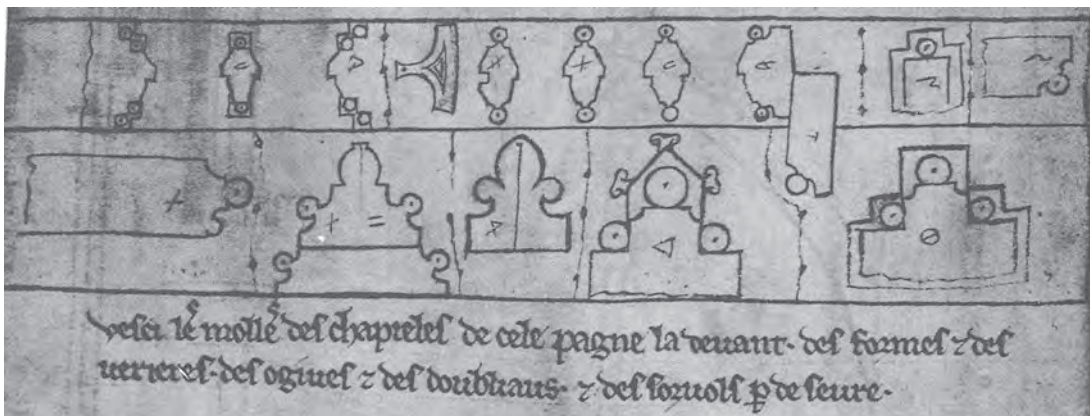 vesci lé mollé des chapieles de cele pagne la devant· des formes ⁊ des
verieres· des ogives ⁊ des doubliaus· ⁊ des sorvols p̄ de seure·